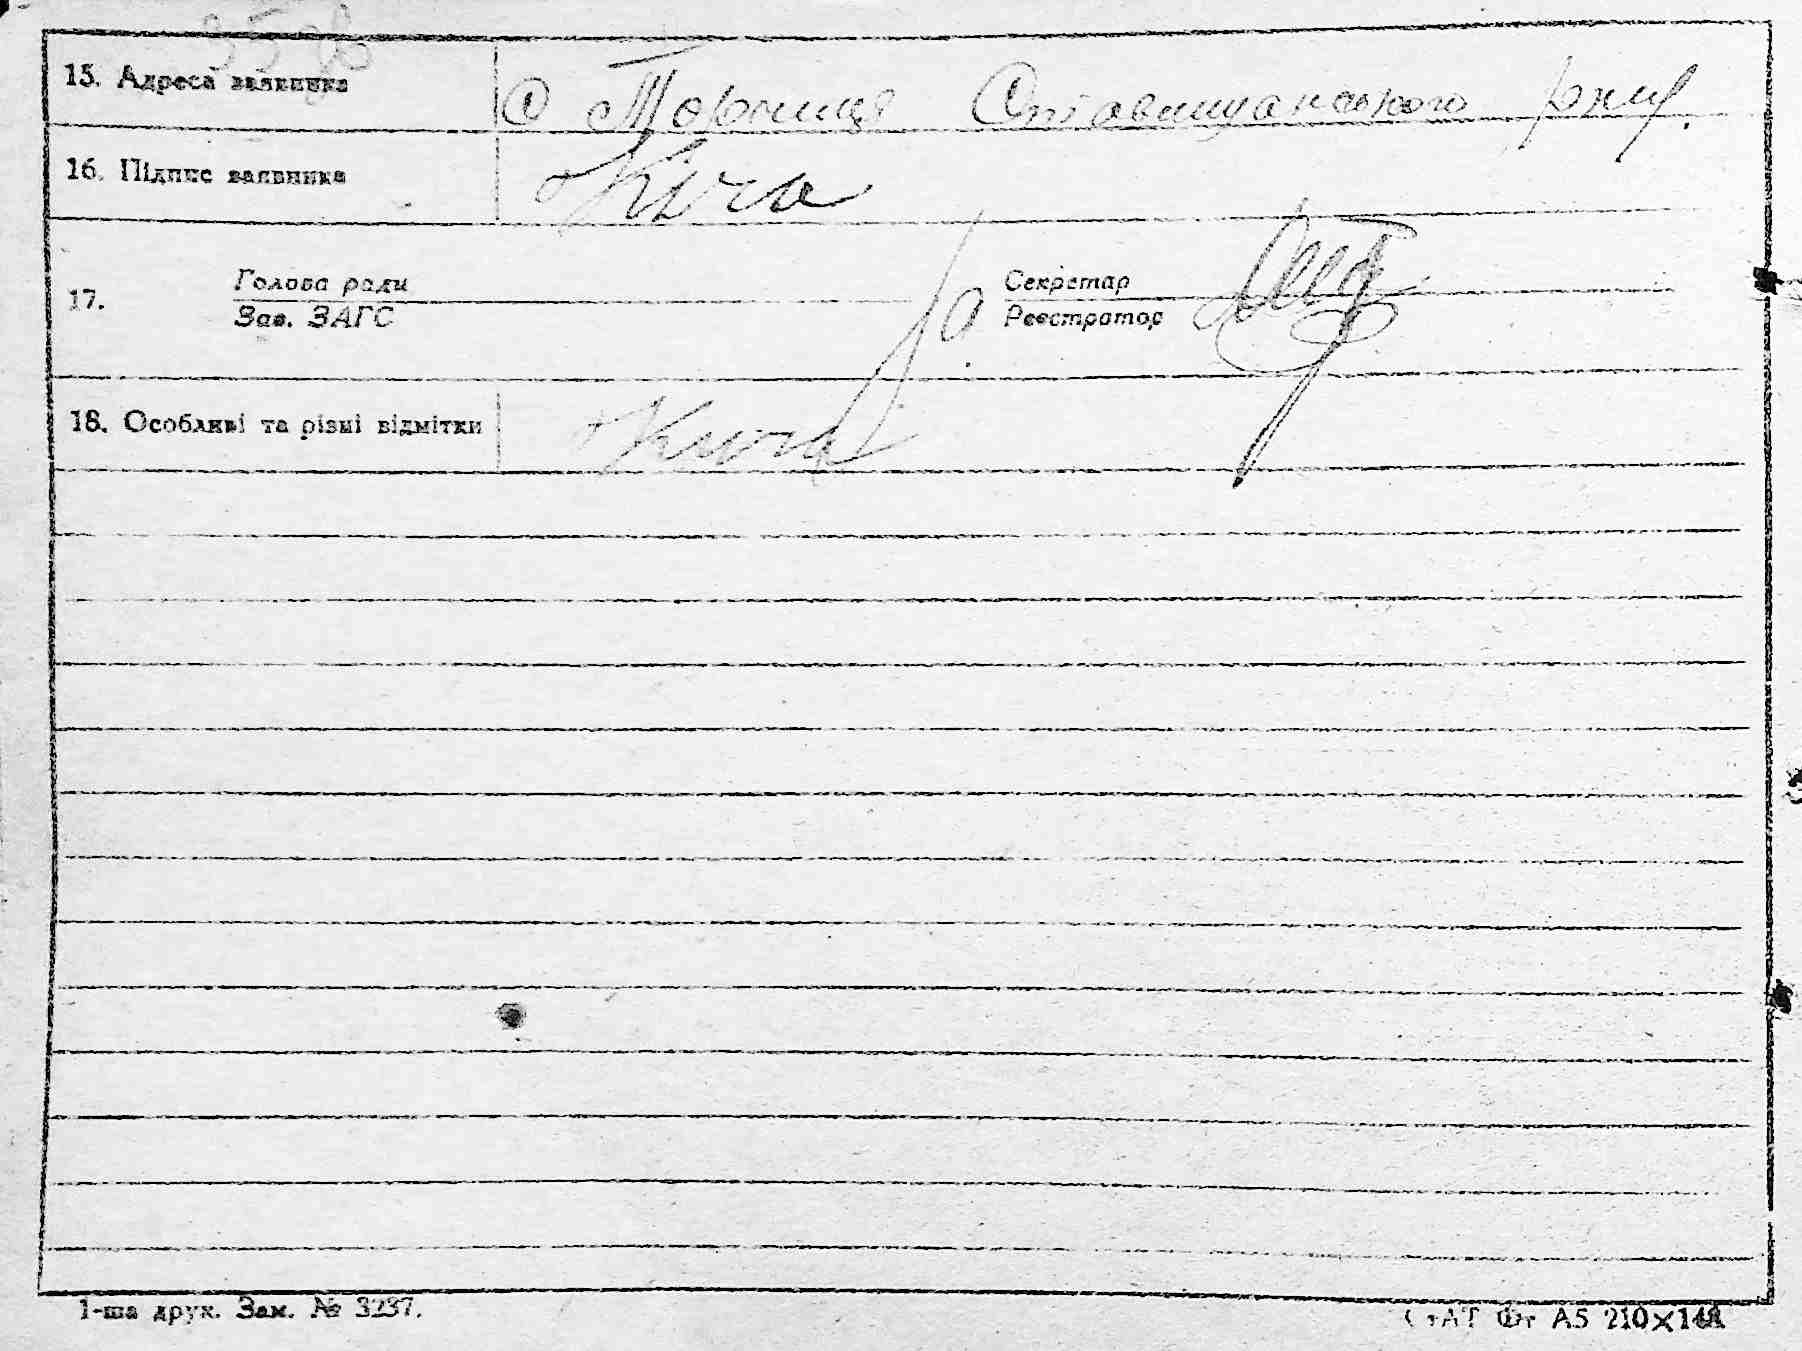 15. Адреса заявника с Торчиця Ставищанського р-ну.
16. Підпис заявника Кича
17. Голова ради Секретар
Зав. ЗАГС Реєстратор
18. Особливі та різні відмітки Кича
1-ша друк. Зам. № 3237. СтАТ Фт А5 210×148